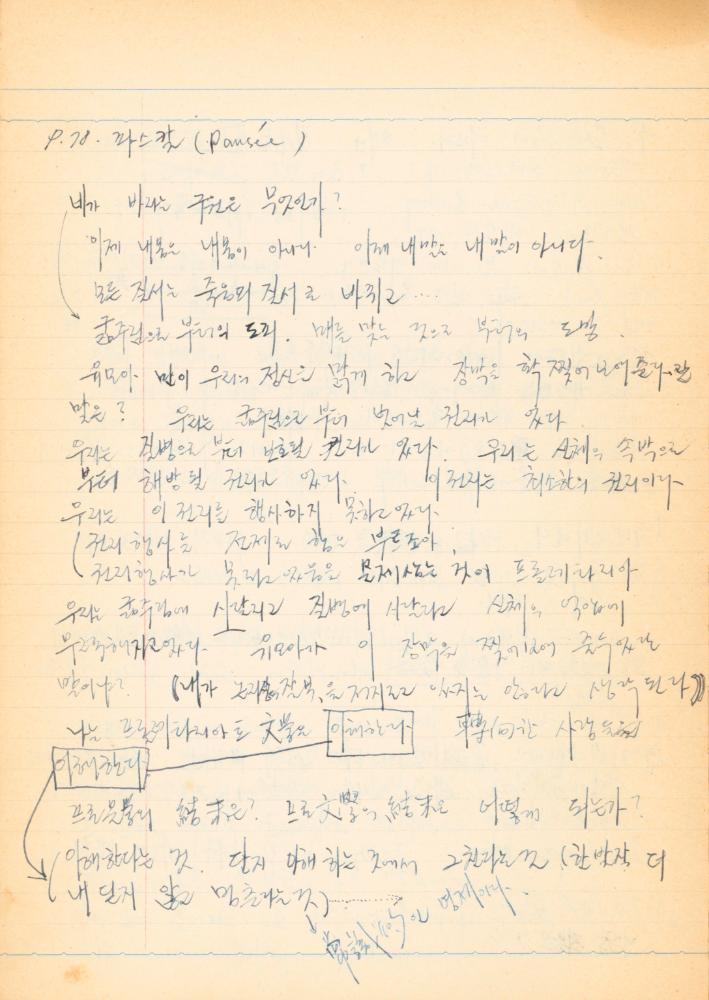 9.28. 파스칼 (Pansée)
내가 바라는 구원은 무엇인가?
이제 내몸은 내몸이 아니다. 이제 내말은 내 말이 아니다.
모든 질서는 죽음의 질서로 바뀌고 ....
굶주림으로 부터의 도피. 매를 맞는 것으로 부터의 도망.
유모아 만이 우리의 정신을 맑게 하고 장막을 확 찢어내어준다.란
말은? 우리는 굶주림으로 부터 벗어날 권리가 있다.
우리는 질병으로 부터 보호될 권리가 있다. 우리는 신체의 속박으로
부터 해방될 권리가 있다. 이 권리는 최소한의 권리이다.
우리는 이 권리를 행사하지 못하고 있다.
(권리행사를 전제로 함은 부르조아,
권리행사가 못되고 있음을 문제삼는 것이 프로레타리아
우리는 굶주림에 시달리고 질병에 시달리고 신체의 억압에
무감각해지고 있다. 유모아가 이 장막을 찢어내어 줄수 있단
말이냐? (내가 논리의 을 저지르고 있지는 않다고 생각된다)
나는 프로레타리아트 文學을 이해한다. 轉向한 사람들을
이해한다.
프로문학의 結末은? 프로文學의 結末은 어떻게 되는가?
(이해한다는 것. 단지 이해하는 것에서 그친다는 것 (한발작 더
내딛지 않고 멈춘다는 것) ..........
→ 常識的인 명제이다.